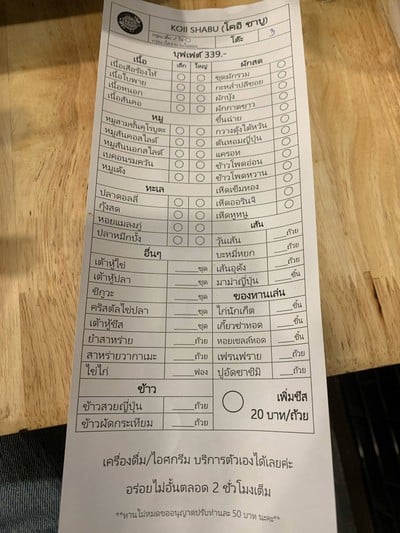 KOII SHABU (โคอิ ชาบู)
โต๊ะ 3
บุฟเฟ่ต์ 339.-
เนื้อ เล็ก ใหญ่ ผักสด
เนื้อเสือร้องไห้ ชุดผักรวม
เนื้อใบพาย กะหล่ำปลีซอย
เนื้อหนอก ผักบุ้ง
เนื้อสันคอ ผักกาดขาว
หมู ขึ้นฉ่าย
หมูสามชั้นคุโรบูตะ กวางตุ้งไต้หวัน
หมูสันคอสไลด์ ต้นหอมญี่ปุ่น
หมูสันนอกสไลด์ แครอท
เบคอนรมควัน ข้าวโพดอ่อน
หมูเด้ง ข้าวโพดหวาน
ทะเล เห็ดเข็มทอง
ปลาดอลลี่ เห็ดออรินจิ
กุ้งสด เห็ดหูหนู
หอยแมลงภู่ เส้น
ปลาหมึกบั้ง วุ้นเส้น ___ถ้วย
อื่นๆ บะหมี่หยก ___ถ้วย
เต้าหู้ไข่ ___ชุด เส้นอูด้ง ___ถ้วย
เต้าหู้ปลา ___ชุด มาม่าญี่ปุ่น ___ชิ้น
ชิกูวะ ___ชุด ของทานเล่น
คริสตัลไข่ปลา ___ชุด ไก่นักเก็ต ___ชิ้น
เต้าหู้ชีส ___ชุด เกี้ยวซ่าทอด ___ชิ้น
ยำสาหร่าย ___ถ้วย หอยเชลล์ทอด ___ชิ้น
สาหร่ายวากาเมะ ___ถ้วย เฟรนฟราย ___ถ้วย
ไข่ไก่ ___ฟอง ปูอัดซาซิมิ ___ถ้วย
ข้าว เพิ่มชีส
ข้าวสวยญี่ปุ่น ___ถ้วย 20 บาท/ถ้วย
ข้าวผัดกระเทียม ___ถ้วย
เครื่องดื่ม/ไอศกรีม บริการตัวเองได้เลยค่ะ
อร่อยไม่อั้นตลอด 2 ชั่วโมงเต็ม
**ทานไม่หมดขออนุญาตปรับท่านละ 50 บาท นะคะ**